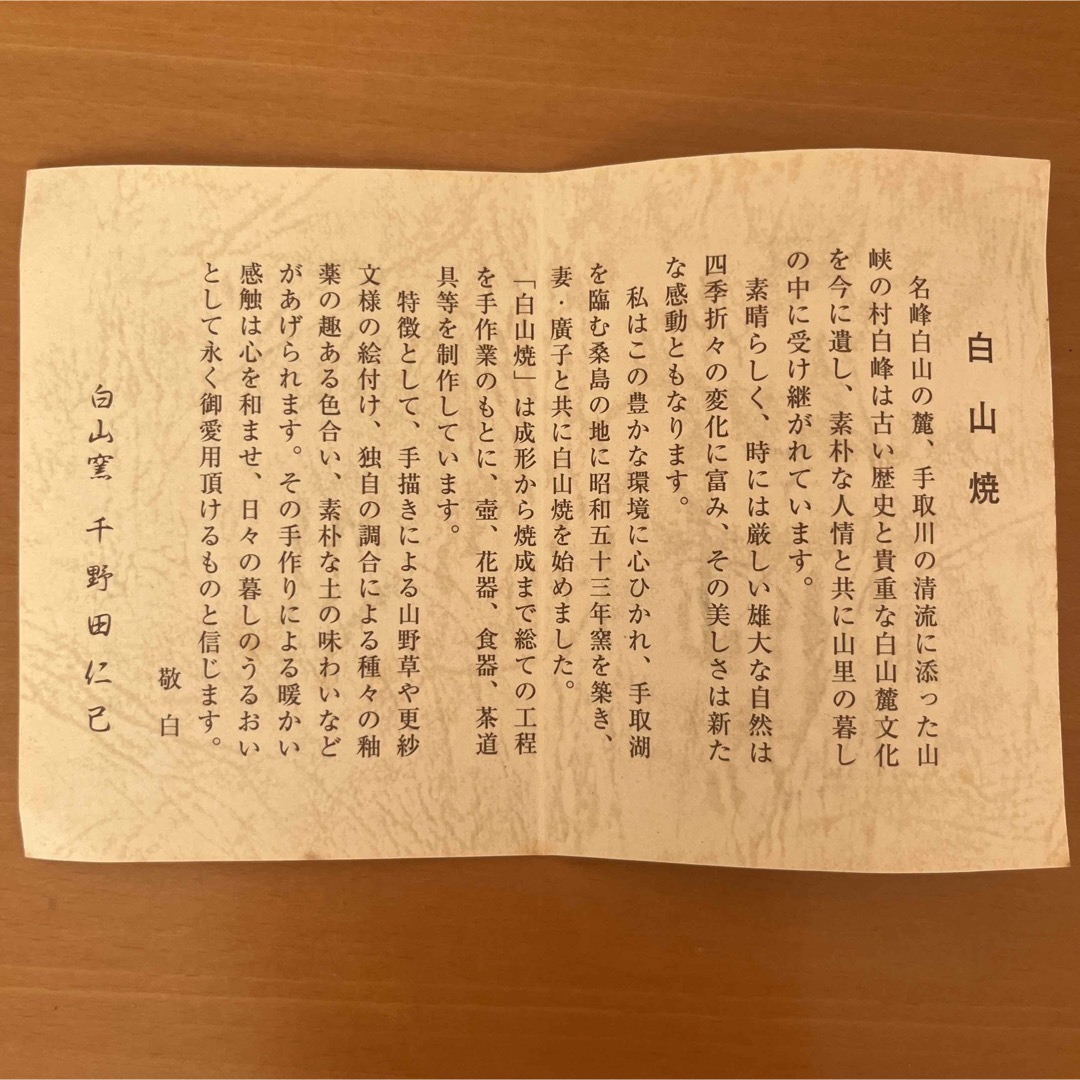 白山焼
名峰白山の麓、手取川の清流に添った山
峡の村白峰は古い歴史と貴重な白山麓文化
を今に遺し、素朴な人情と共に山里の暮し
の中に受け継がれています。
素晴らしく、時には厳しい雄大な自然は
四季折々の変化に富み、その美しさは新た
な感動ともなります。
私はこの豊かな環境に心ひかれ、手取湖
を臨む桑島の地に昭和五十三年窯を築き、
妻・廣子と共に白山焼を始めました。
「白山焼」は成形から焼成まで総ての工程
を手作業のもとに、壺、花器、食器、茶道
具等を制作しています。
特徴として、手描きによる山野草や更紗
文様の絵付け、独自の調合による種々の釉
薬の趣ある色合い、素朴な土の味わいなど
があげられます。その手作りによる暖かい
感触は心を和ませ、日々の暮しのうるおい
として永く御愛用頂けるものと信じます。
敬白
白山窯 千野田仁己